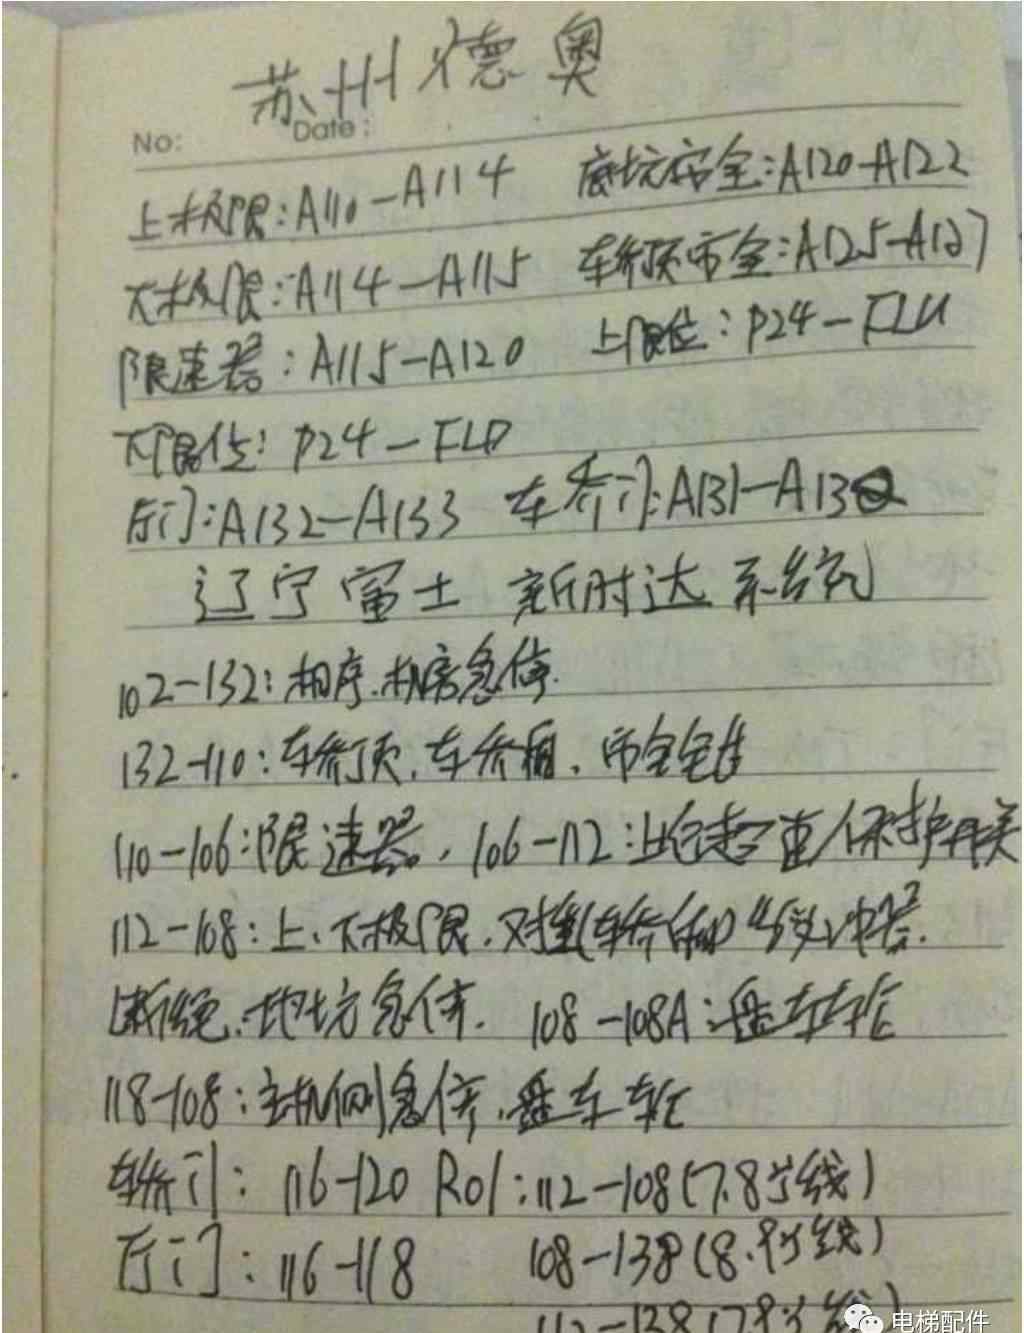 苏州德奥
No:
Date:
上极限:A110-A114 底坑安全:A120-A122
下极限:A114-A115 轿顶安全:A125-A127
限速器:A115-A120 上限位:P24-FLU
下限位:P24-FLD
厅门:A132-A133 轿门:A131-A132
辽宁富士 新时达系统
102-132:相序.机房急停.
132-110:轿顶,轿厢,安全
110-106:限速器,106-112:上行超速保护开关
112-108:上、下极限.对重(轿厢)缓冲器.
断绳.地坑急停. 108-108A:盘车轮
118-108:主机侧急停.盘车轮
轿门:116-120 R01:112-108(7.8号线)
厅门:116-118 108-138(8.9号线)
112-138(7.9号线)
电梯配件